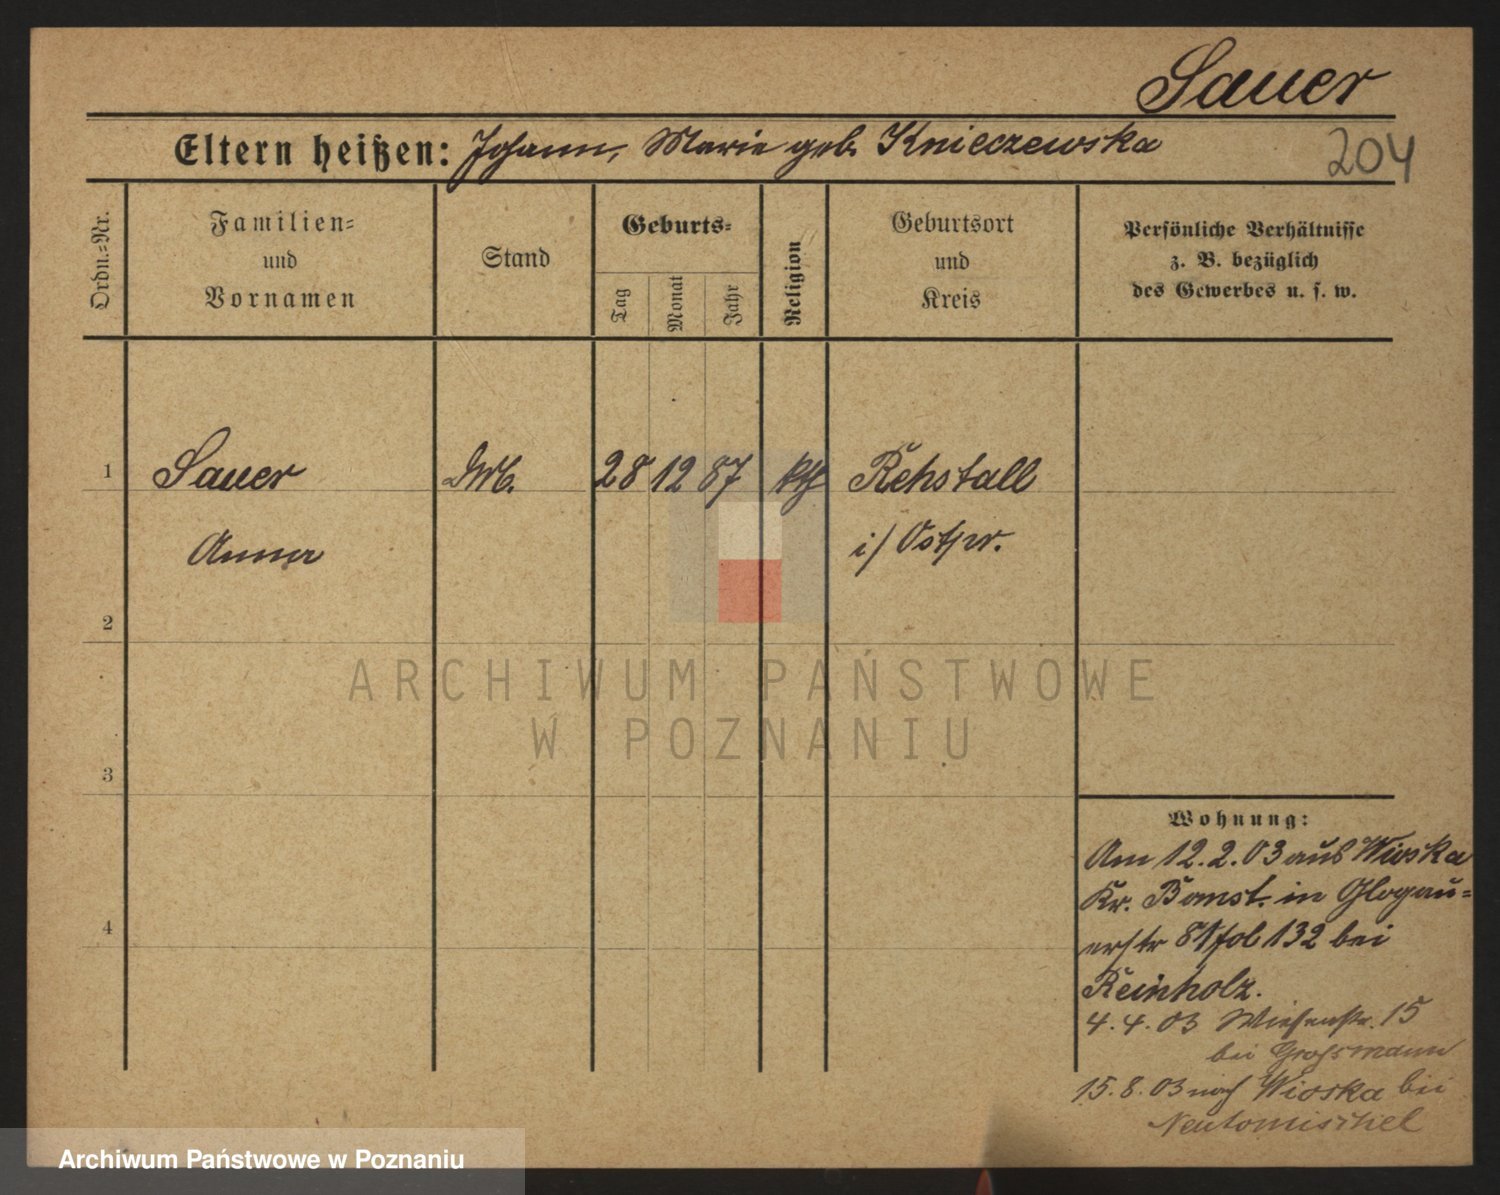 Sauer
Eltern heißen: Johann, Marie geb. Knieczewska
204
Ordn.-Nr.
Familien-
und
Vornamen
Stand
Geburts-
Tag
Monat
Jahr
Religion
Geburtsort
und
Kreis
Persönliche Verhältnisse
z. B. bezüglich
des Gewerbes u. s. w.
1 Sauer 28 12 87 kth Rehstall
Anna i/ Ostpr.
2
3
4
ARCHIWUM PAŃSTWOWE
W POZNANIU
Wohnung:
Am 12.2.03 aus Wioska
Kr. Bomst. in Glogau-
erstr 81 fol 132 bei
Reinholz.
4.4.03 Wiesenstr. 15
bei Grossmann
15.8.03 nach Wioska bei
Neutomischel
Archiwum Państwowe w Poznaniu